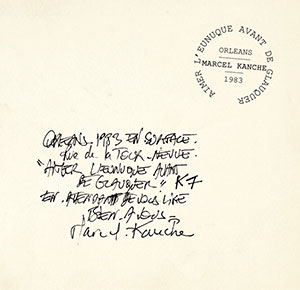 AIMER L'EUNUQUE AVANT DE GLAUQUER
ORLEANS
MARCEL KANCHE
1983
ORLEANS. 1983 EN SURFACE.
rue de la TOUR NEUVE.
"AIMER L'EUNUQUE AVANT
DE GLAUQUER" K7
EN ATTENDANT DE VOUS LIRE
BIEN A VOUS
Marcel Kanche